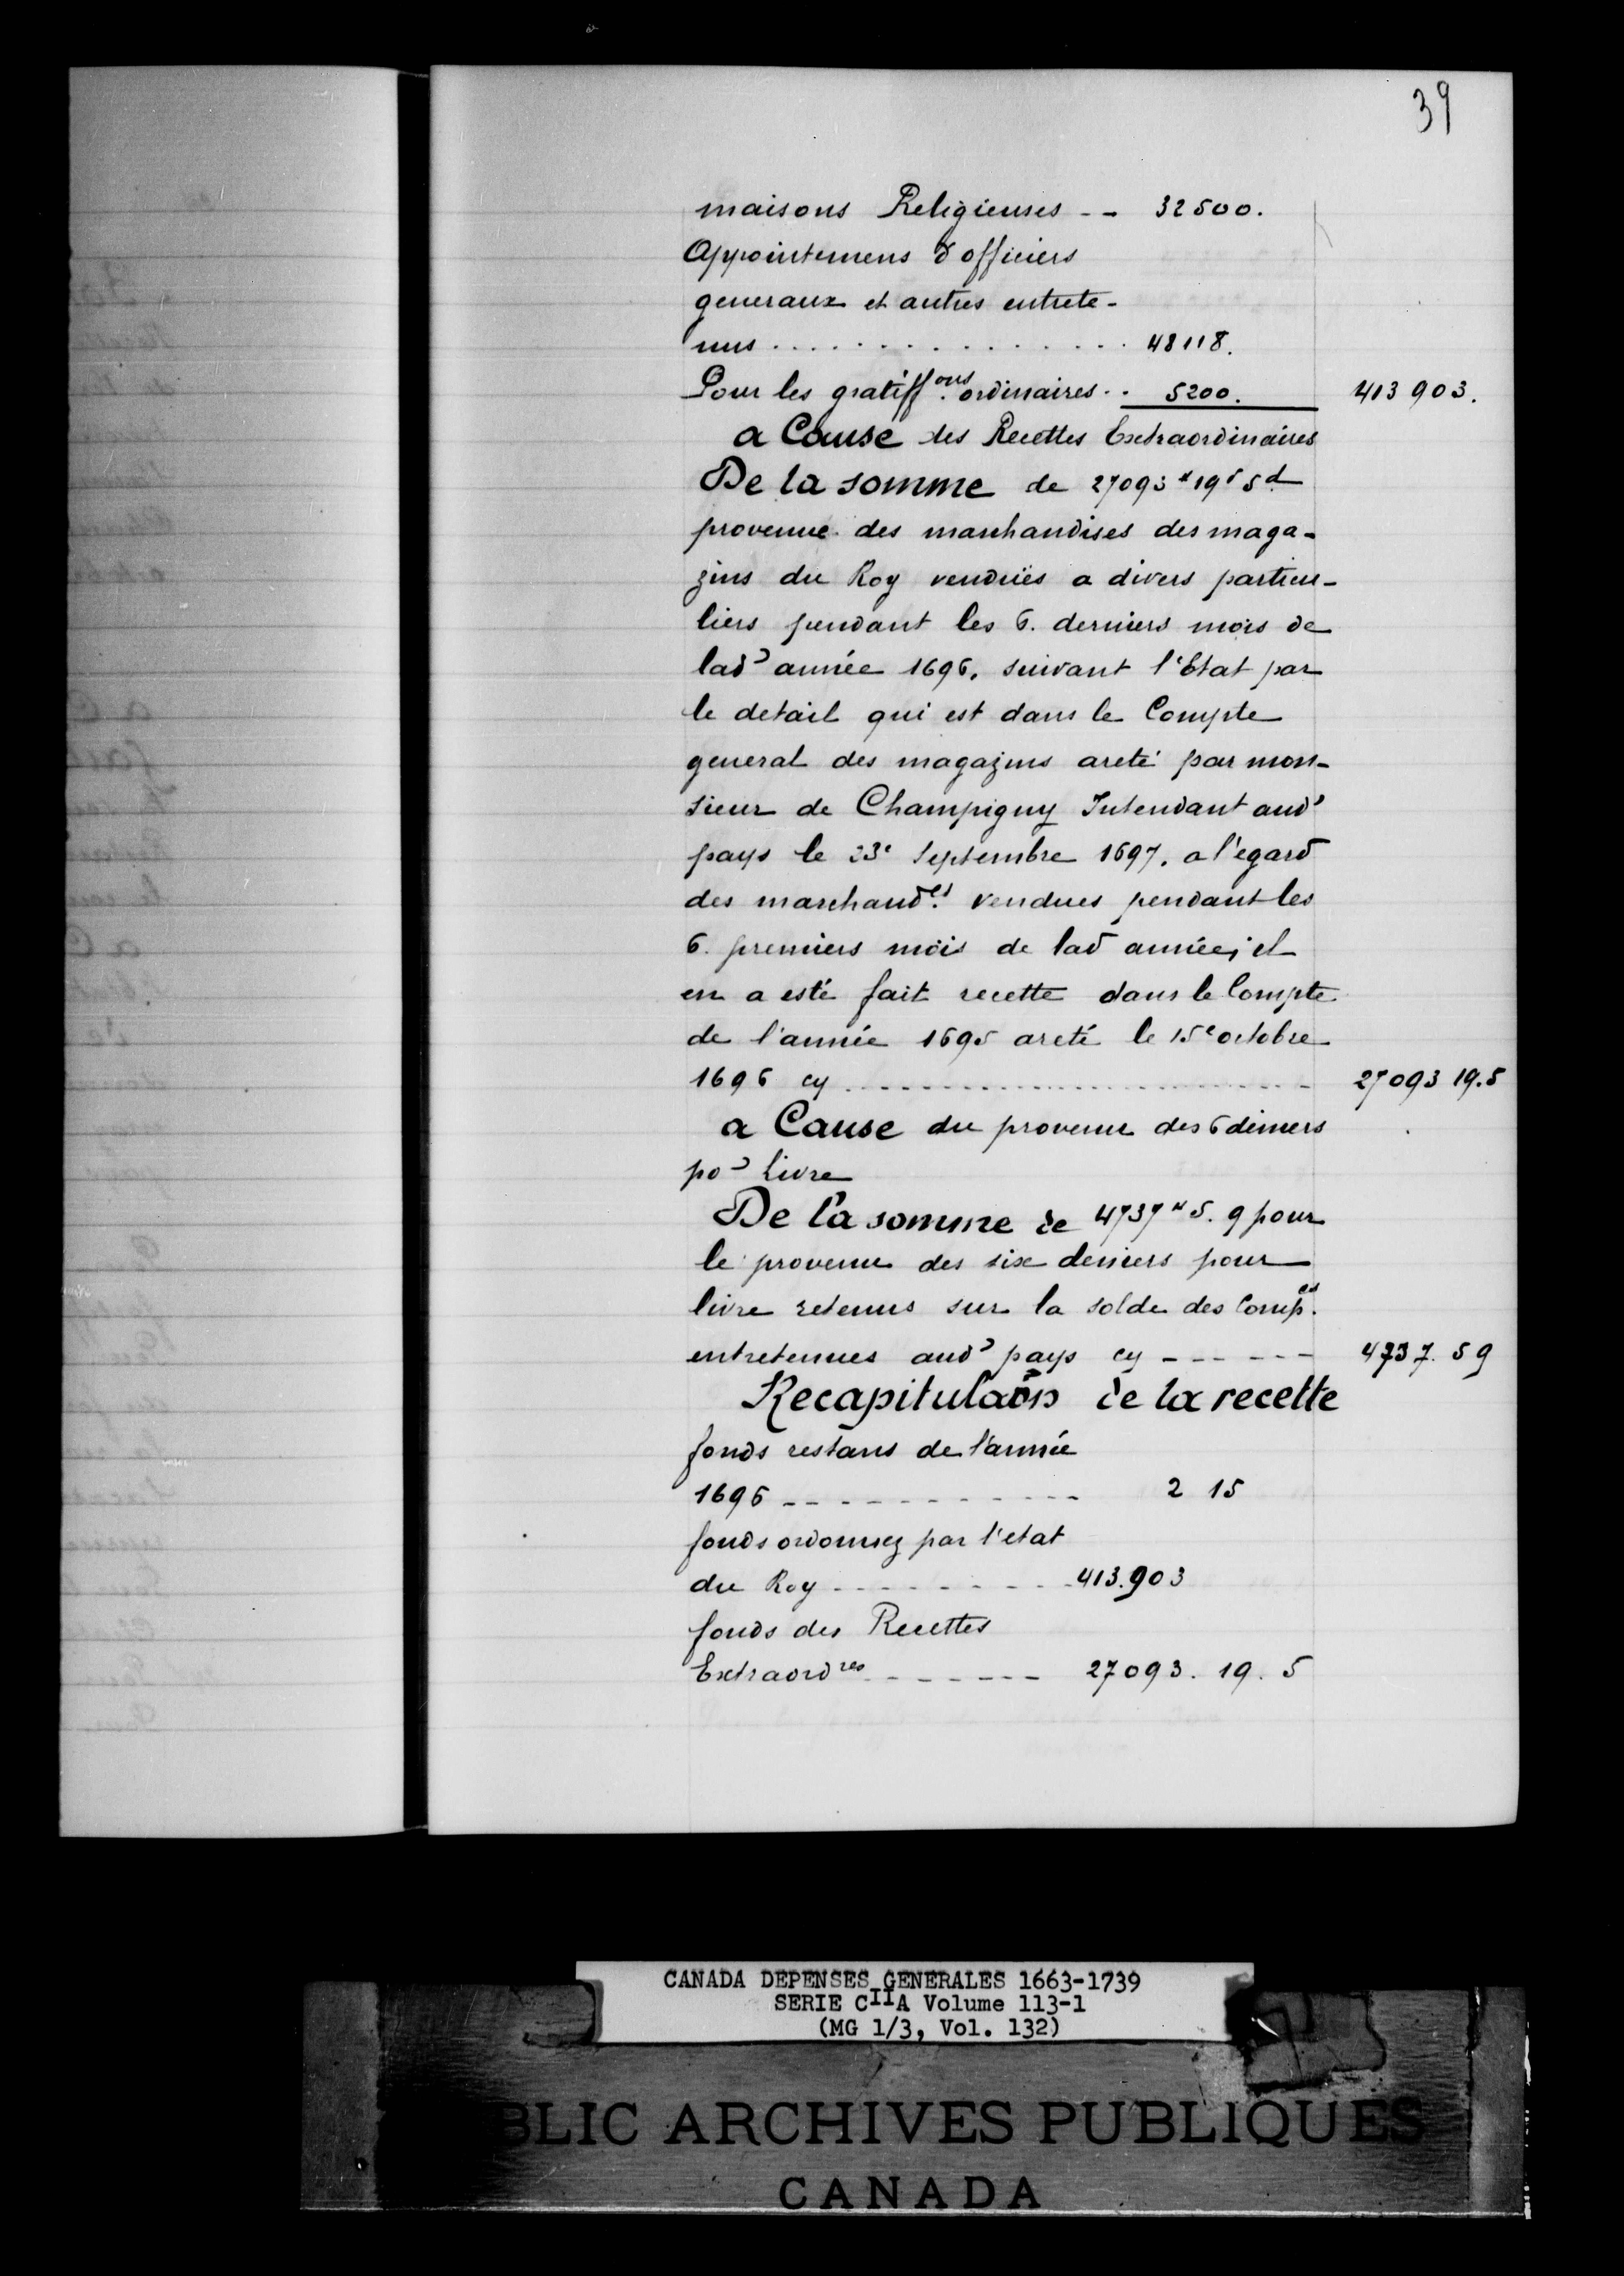 39
maisons Religieuses -- 32500.
Appointemens d'officiers
generaux et autres entrete-
nus ................ 48118.
Pour les gratiff.ons ordinaires.. 5200. 413 903.
a Cause des Recettes Extraordinaires
De la somme de 27093# 19s 5d
provenue des marchandises des maga-
zins du Roy vendües a divers particu-
liers pendant les 6. derniers mois de
lad' année 1696, suivant l'Etat par
le detail qui est dans le Compte
general des magazins areté par mon-
sieur de Champigny Intendant aud'
pays le 23e Septembre 1697. a l'egard
des marchand.es vendues pendant les
6. premiers mois de lad année, il
en a esté fait recette dans le Compte
de l'année 1695 areté le 15e octobre
1696 cy ........................ 27093 19.5
a Cause du provenu des 6 deniers
po' Livre
De la somme de 4737# 5. 9 pour
le provenu des six deniers pour
livre retenus sur la solde des Comp.es
entretenues aud' pays cy ------ 4737. 5 9
Recapitulaõn de la recette
fonds restans de l'année
1696 ----------- 2 15
fonds ordonnez par l'etat
du Roy --------- 413.903
fonds des Recettes
Extraordres ------- 27093. 19. 5
CANADA DEPENSES GENERALES 1663-1739
SERIE CIIA Volume 113-1
(MG 1/3, Vol. 132)
BLIC ARCHIVES PUBLIQUES
CANADA